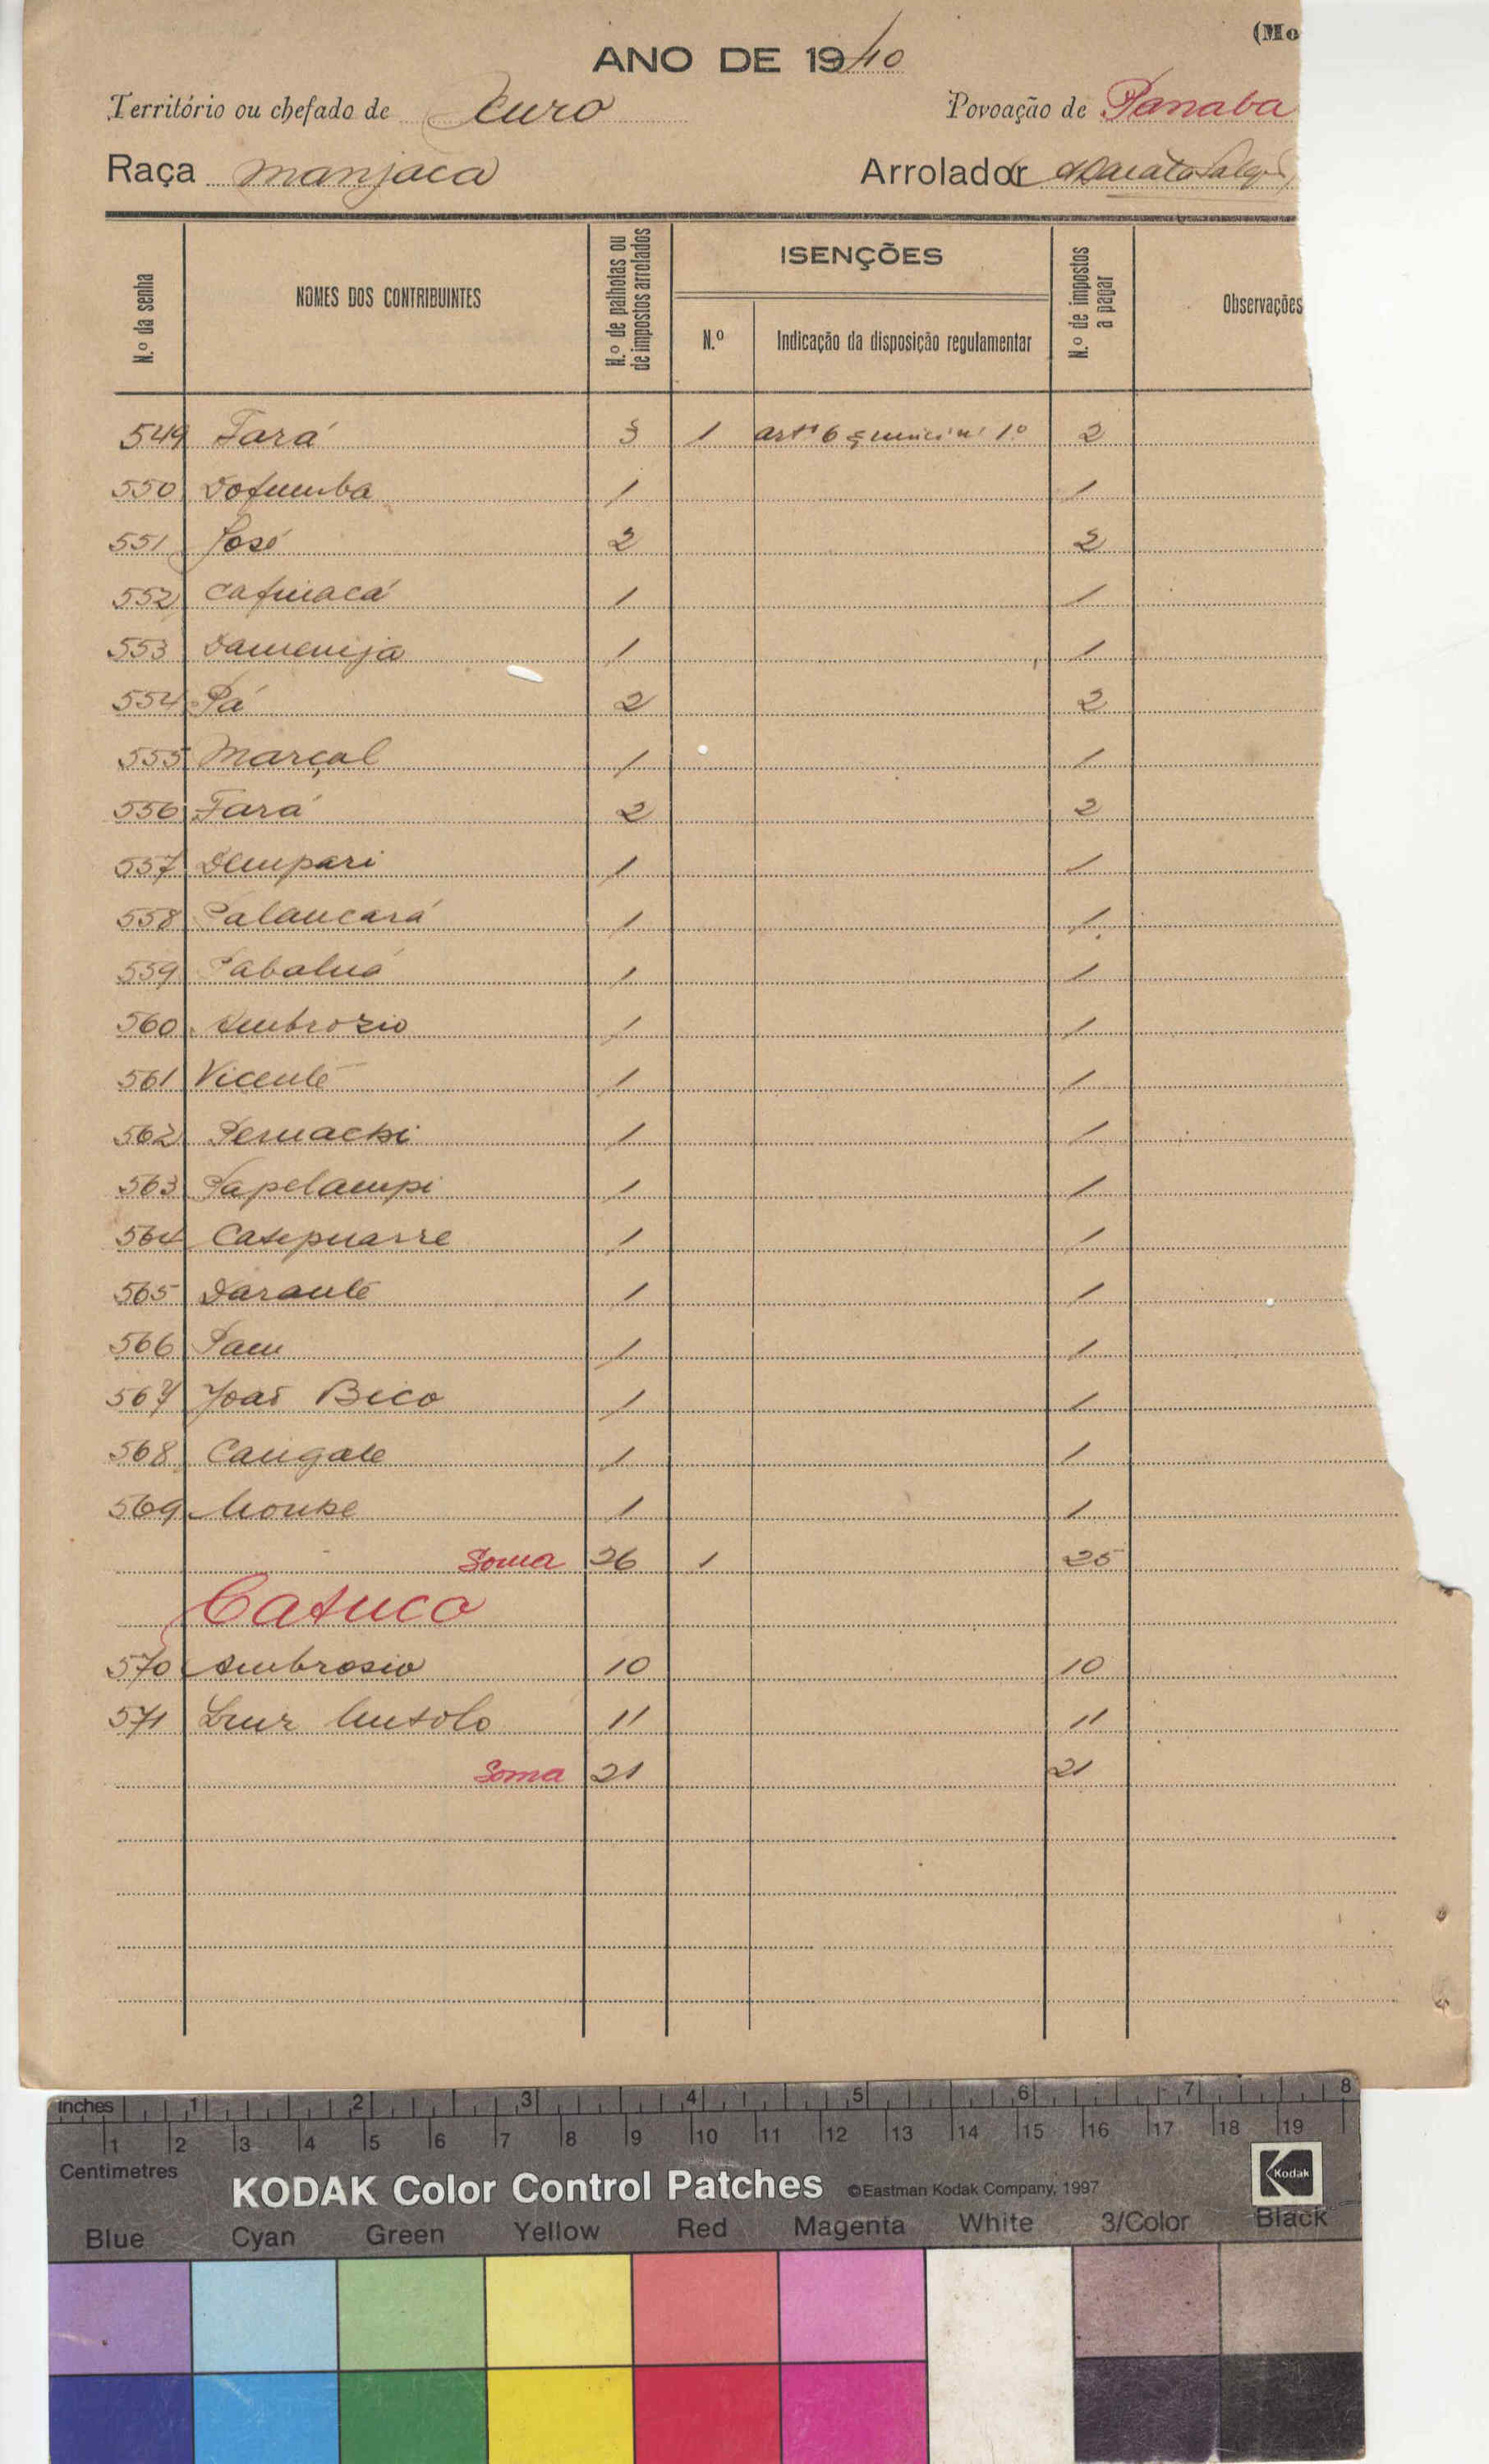 (Mo
ANO DE 1940
Território ou chefado de Churo
Povoação de Panaba
Raça manjaca
Arrolador
N.º da senha
NOMES DOS CONTRIBUINTES
N.º de palhotas ou de impostos arrolados
ISENÇÕES
N.º
Indicação da disposição regulamentar
N.º de impostos a pagar
Observações
549 Fará 3 1 artº 6 § 1º 2
550 Dofumba 1 1
551 José 2 2
552 1 1
553 1 1
554 Pá 2 2
555 Marçal 1 1
556 Fará 2 2
557 Dempari 1 1
558 Palancará 1 1
559 1 1
560 Ambrozio 1 1
561 Vicente 1 1
562 1 1
563 Papelampi 1 1
564 1 1
565 Darante 1 1
566 Pam 1 1
567 João Bico 1 1
568 Cangate 1 1
569 1 1
Soma 26 1 25
570 Ambrosio 10 10
571 11 11
Soma 21 21
inches 1 2 3 4 5 6 7 8
1 2 3 4 5 6 7 8 9 10 11 12 13 14 15 16 17 18 19
Centimetres
KODAK Color Control Patches ©Eastman Kodak Company, 1997
Kodak
Blue Cyan Green Yellow Red Magenta White 3/Color Black